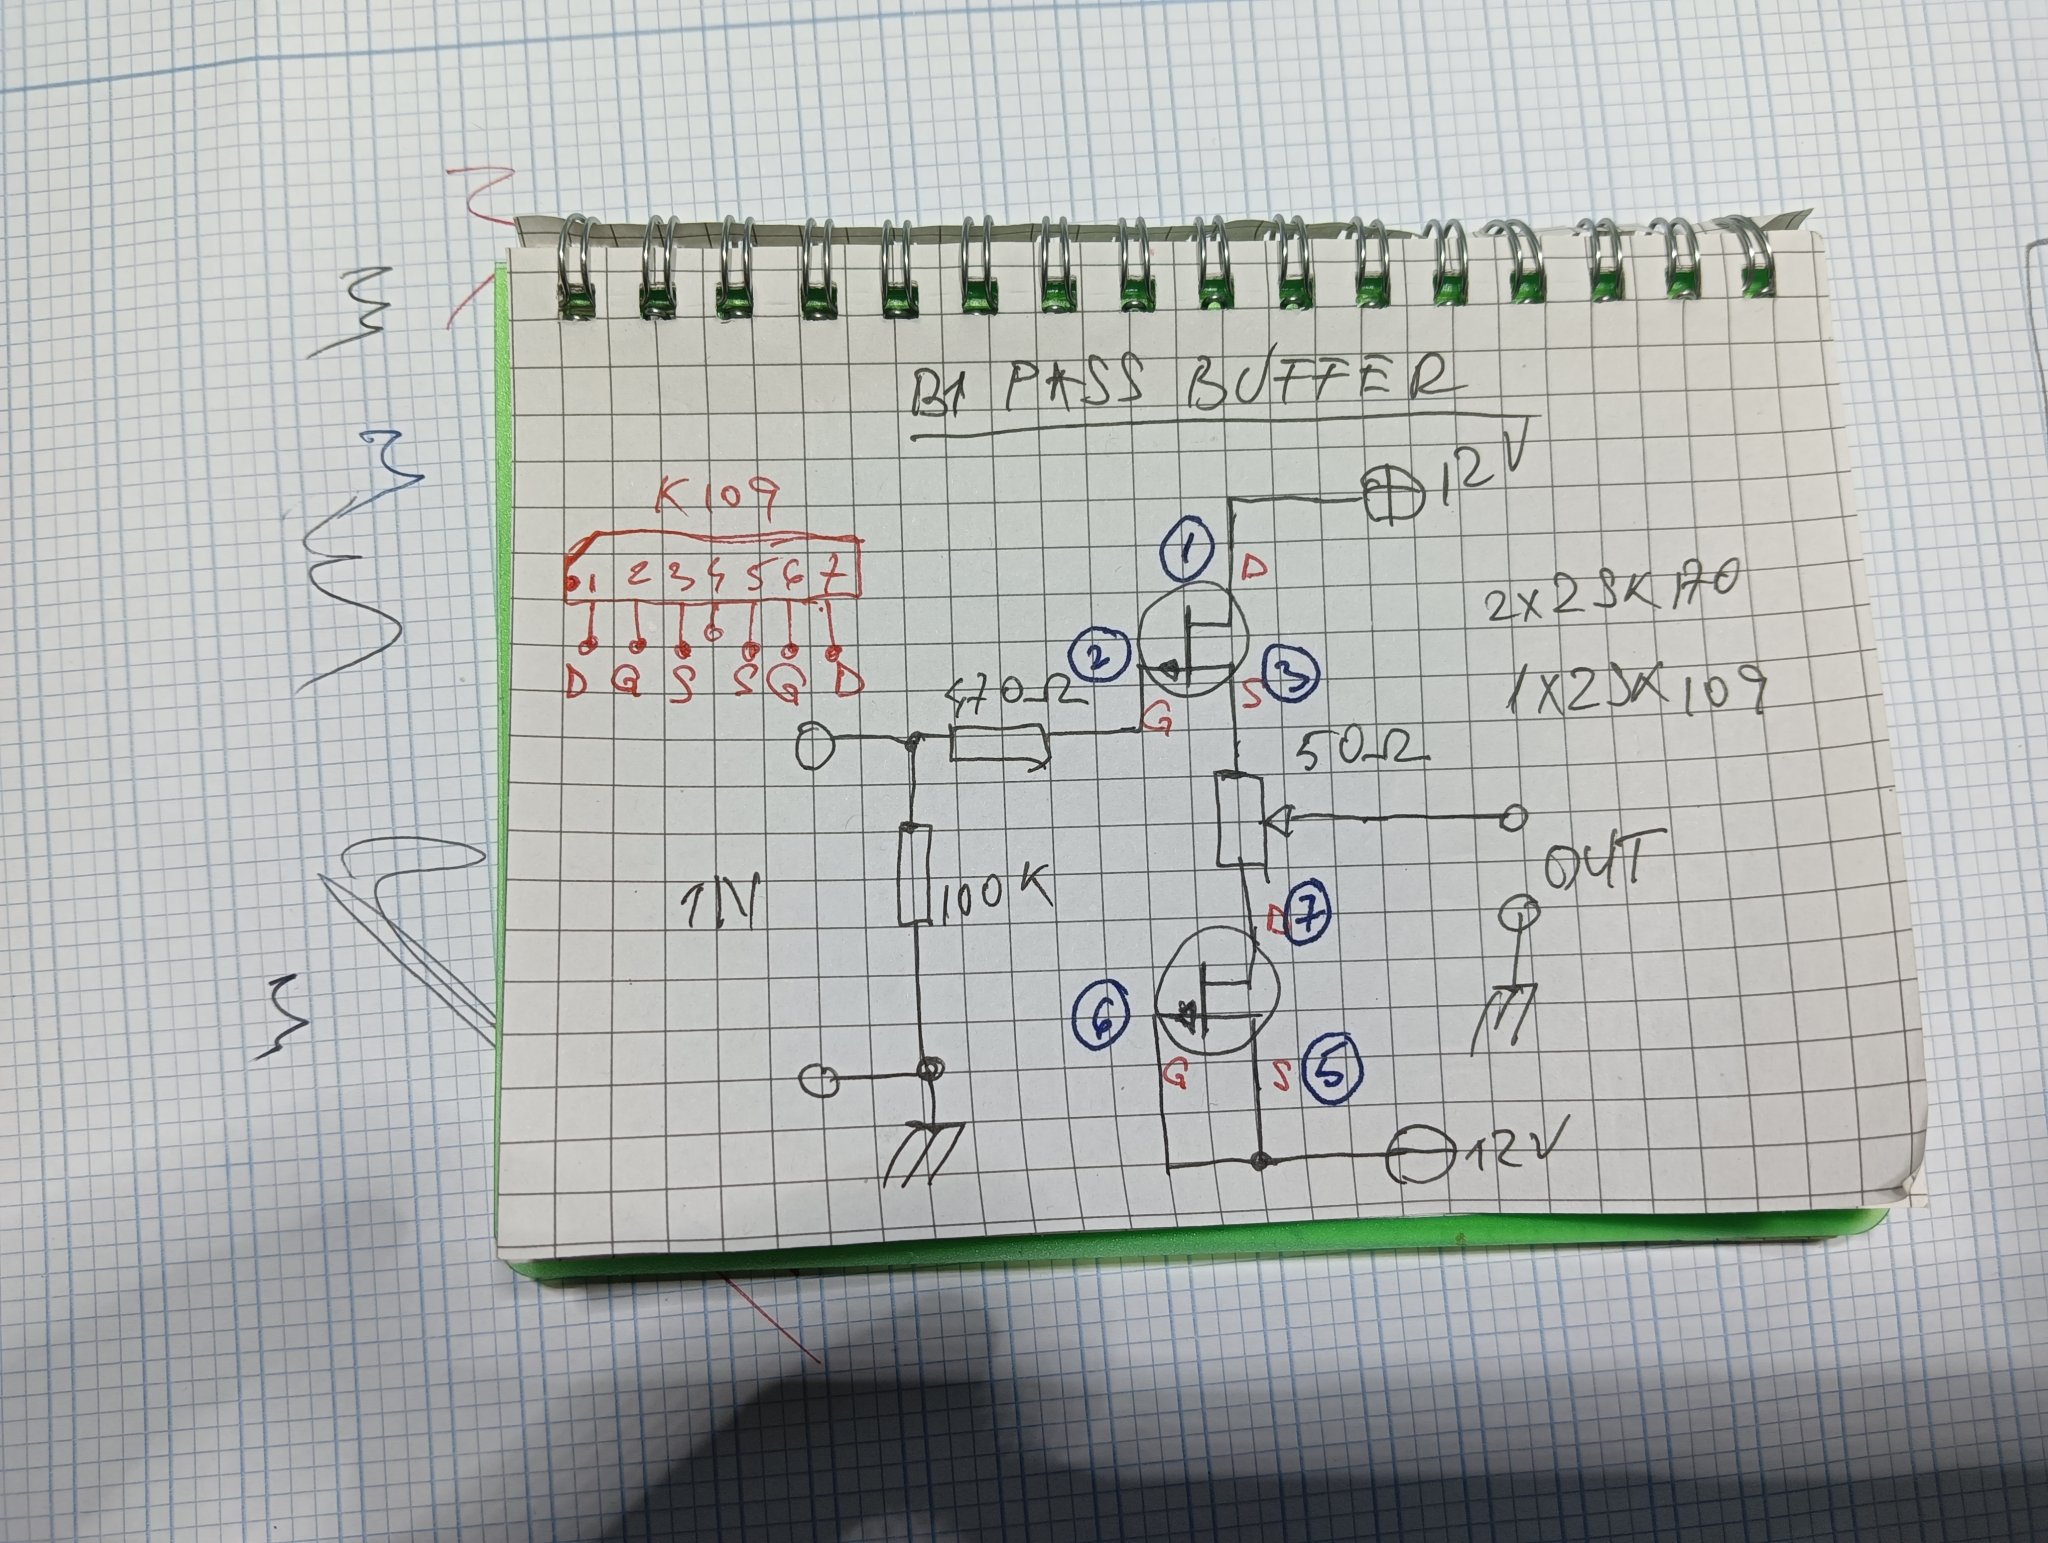 B1 PASS BUFFER
12V
K109
1 2 3 4 5 6 7
D G S S G D
1
D
2
3
G
S
2x2SK170
1x2SK109
470Ω
50Ω
IN
100K
OUT
D
7
6
G
S
5
12V